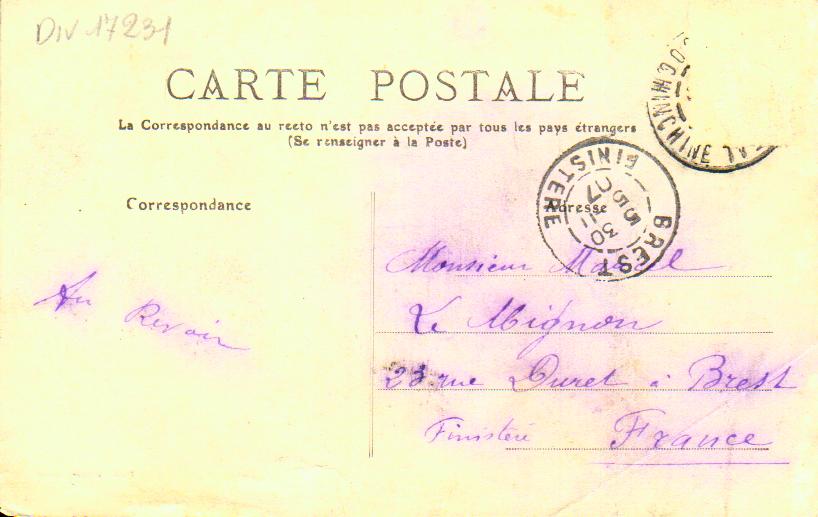 Div 17231
CARTE POSTALE
La Correspondance au recto n'est pas acceptée par tous les pays étrangers
(Se renseigner à la Poste)
COCHINCHINE
BREST
FINISTERE
30
07
Correspondance
Adresse
Au Revoir
Monsieur Marcel
Le Mignon
23 rue Duret à Brest
Finistère France